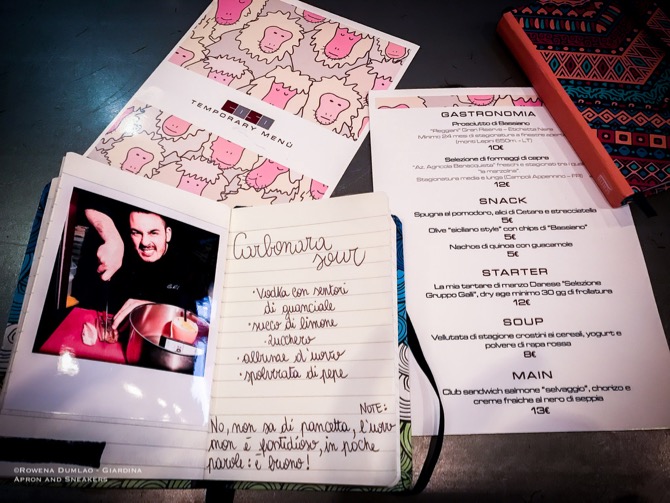 TEMPORARY MENÙ
GASTRONOMIA
Prosciutto di Bassiano
"Reggiani" Gran Riserva - Etichetta
Minimo 24 mesi di stagionatura a
(monti Lepini 650m - LT)
10€
Selezione di formaggi di capra
"Az. Agricola" freschi e stagionati tra i quali
"la marzolina"
Stagionatura media e lunga (Campoli Appennino - FR)
12€
SNACK
Spugna al pomodoro, alici di Cetara e stracciatella
5€
Olive "siciliano style" con chips di "Bassiano"
5€
Nachos di quinoa con guacamole
5€
STARTER
La mia tartare di manzo Danese "Selezione
Gruppo Galli", dry age minimo 30 gg di frollatura
12€
SOUP
Vellutata di stagione crostini ai cereali, yogurt e
polvere di rapa rossa
8€
MAIN
Club sandwich salmone "selvaggio", chorizo e
creme fraiche al nero di seppia
13€
Carbonara
sour
• Vodka con sentori
di guanciale
• succo di limone
• zucchero
• albume d'uovo
• spolverata di pepe
NOTE:
No, non sa di pancetta, l'uovo
non è fastidioso, in poche
parole: è buono!
©Rowena Dumlao - Giardina
Apron and Sneakers